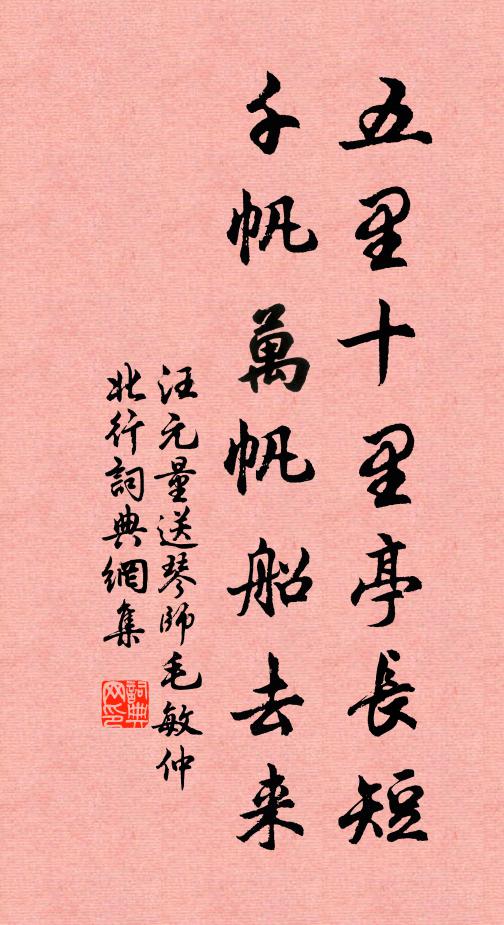 五里十里亭長短
千帆萬帆船去来
汪元量送琴師毛敏仲
北行詞典網集
詞典网印